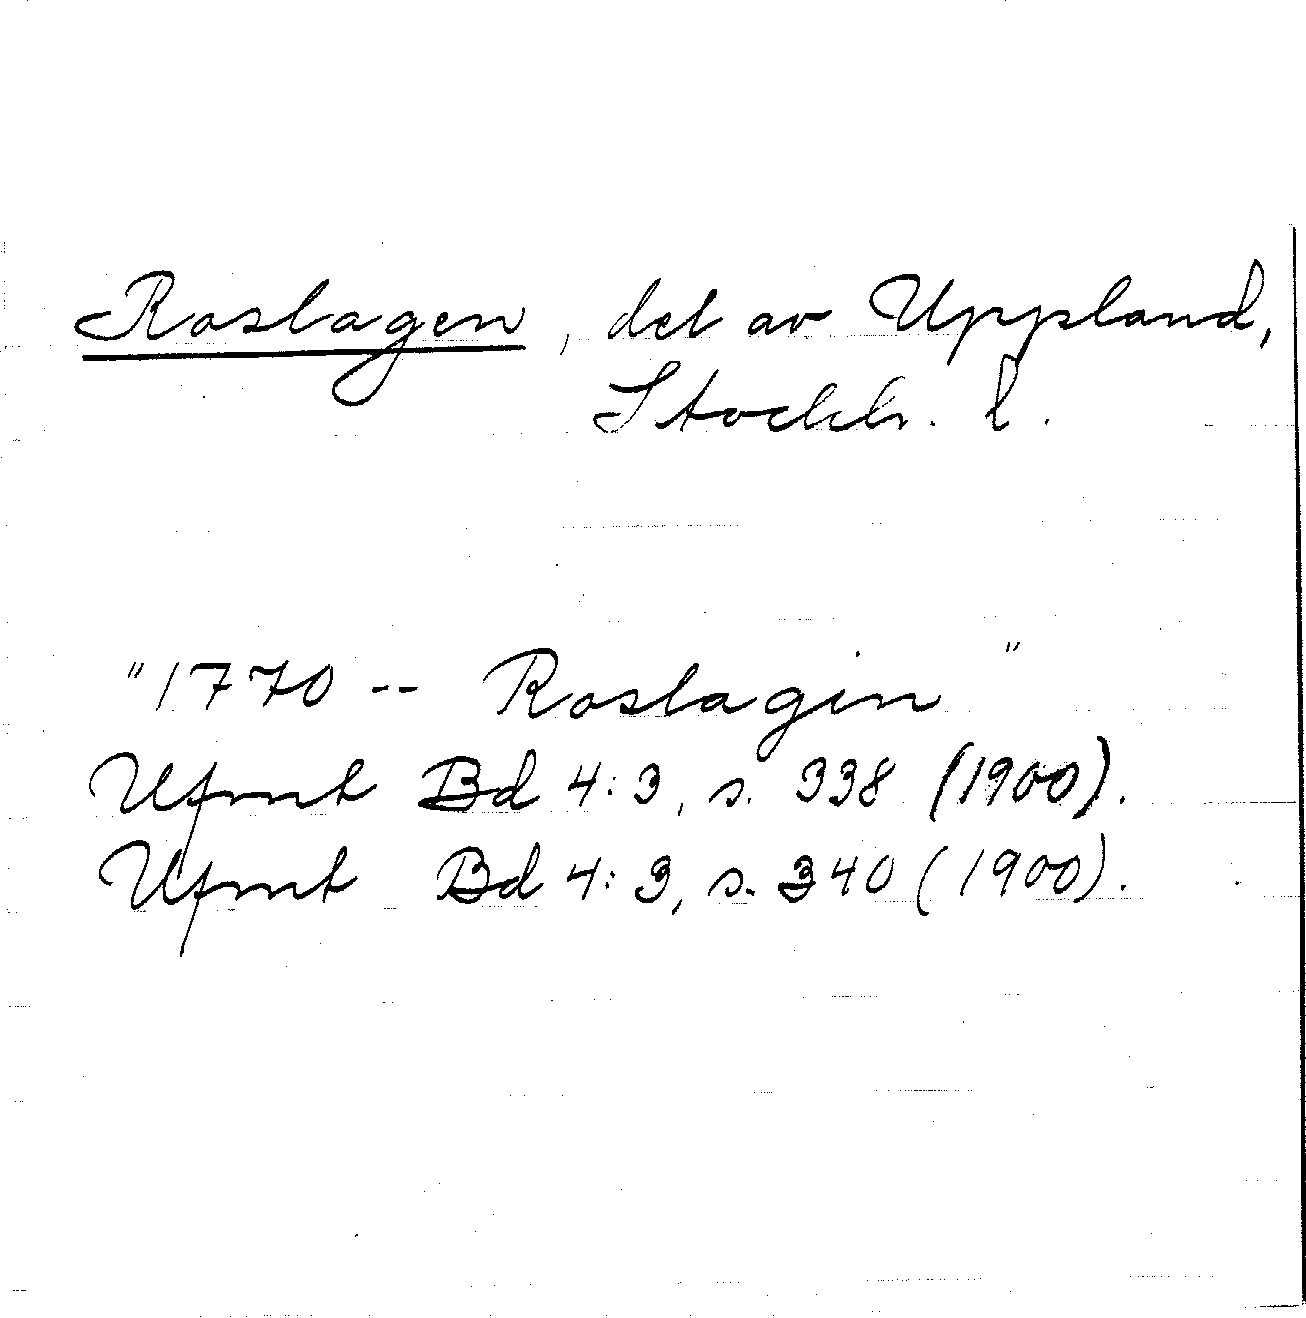 Roslagen, del av Uppland,
Stockh. l.
"1770 -- Roslagin "
Ufmt Bd 4:3, s. 338 (1900).
Ufmt Bd 4:3, s. 340 (1900).